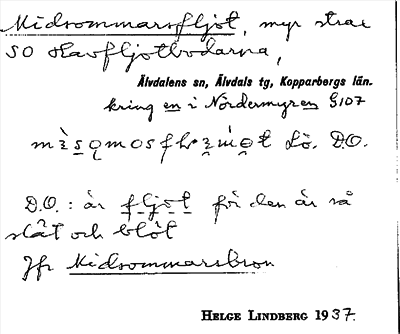 Midsommarsfljot, myr strax
SO Skavfljotbodarna,
Älvdalens sn, Älvdals tg, Kopparbergs län.
kring en i Nordermyren G107
Lö. D.O.
D.O.: är fljot för den är så
slät och blöt
Jfr Midsommarsbron
HELGE LINDBERG 1937.